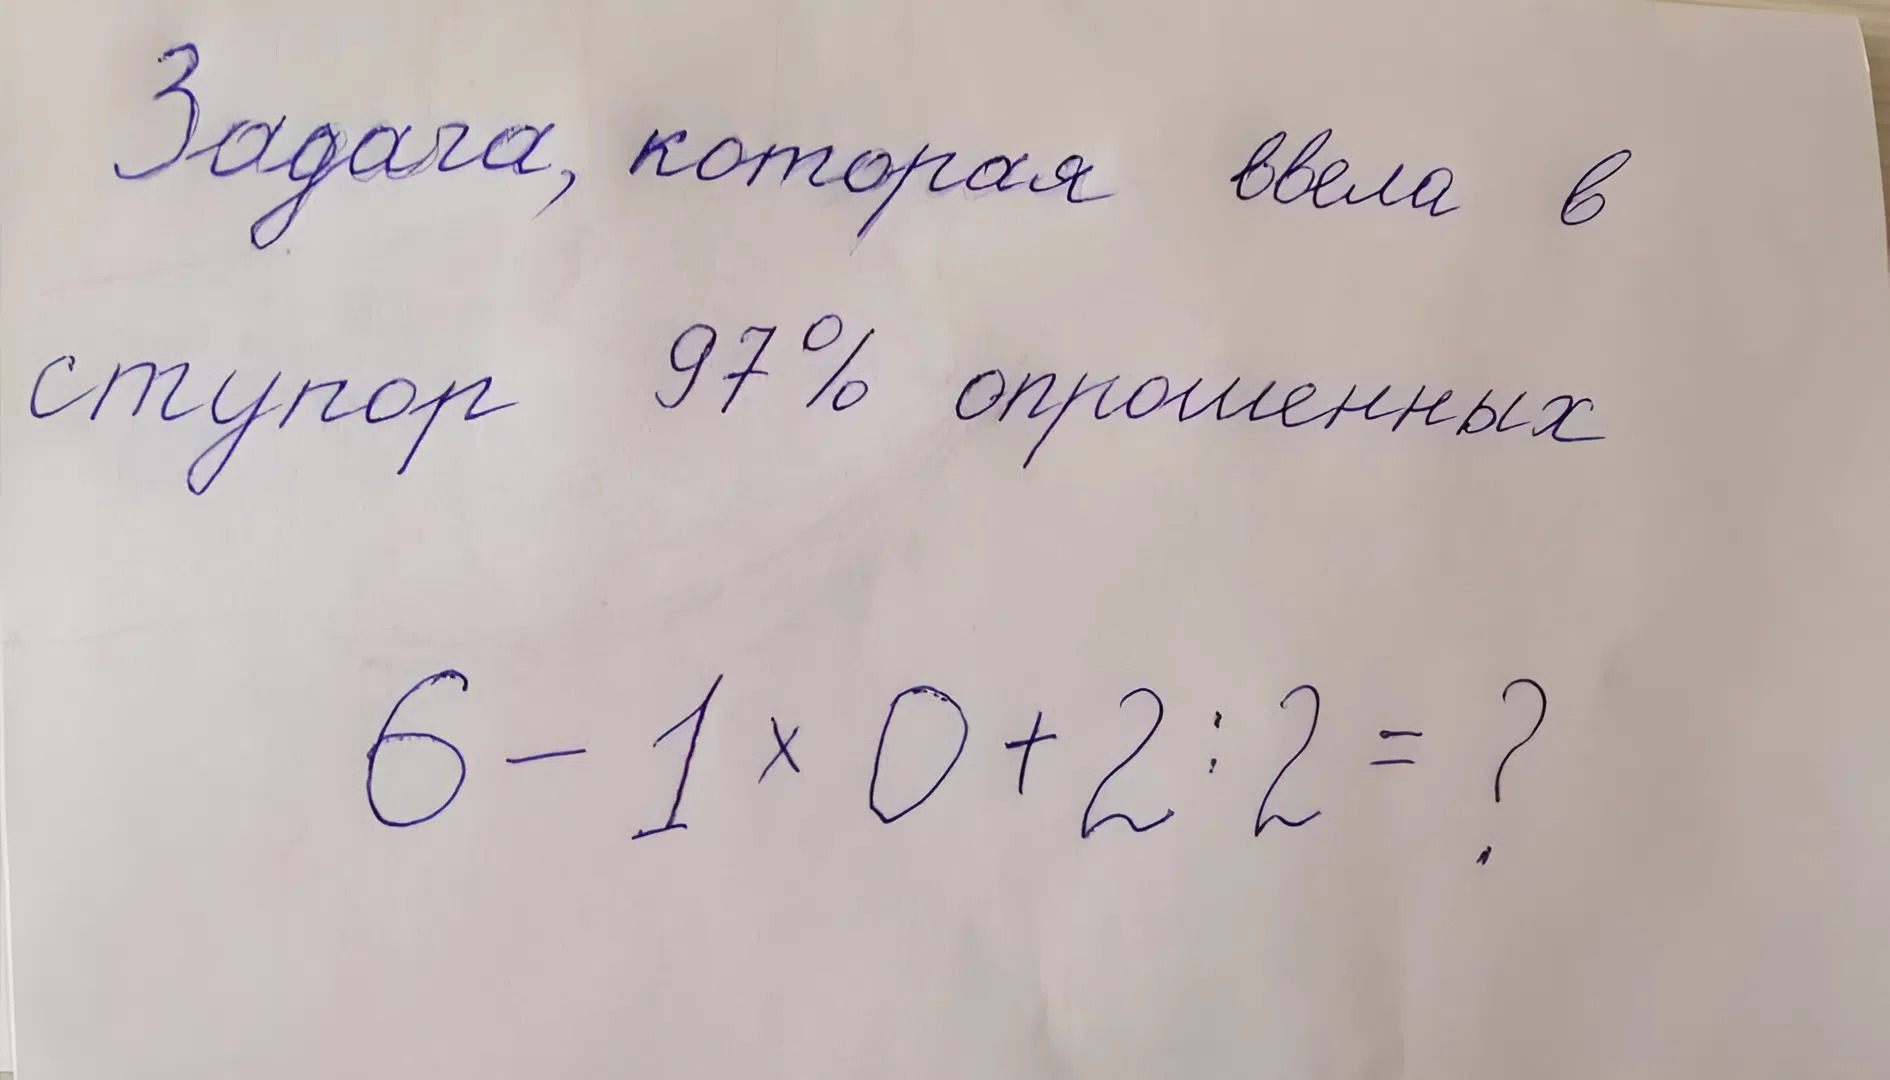 Задача, которая ввела в
ступор 97% опрошенных
6 - 1 × 0 + 2 : 2 = ?